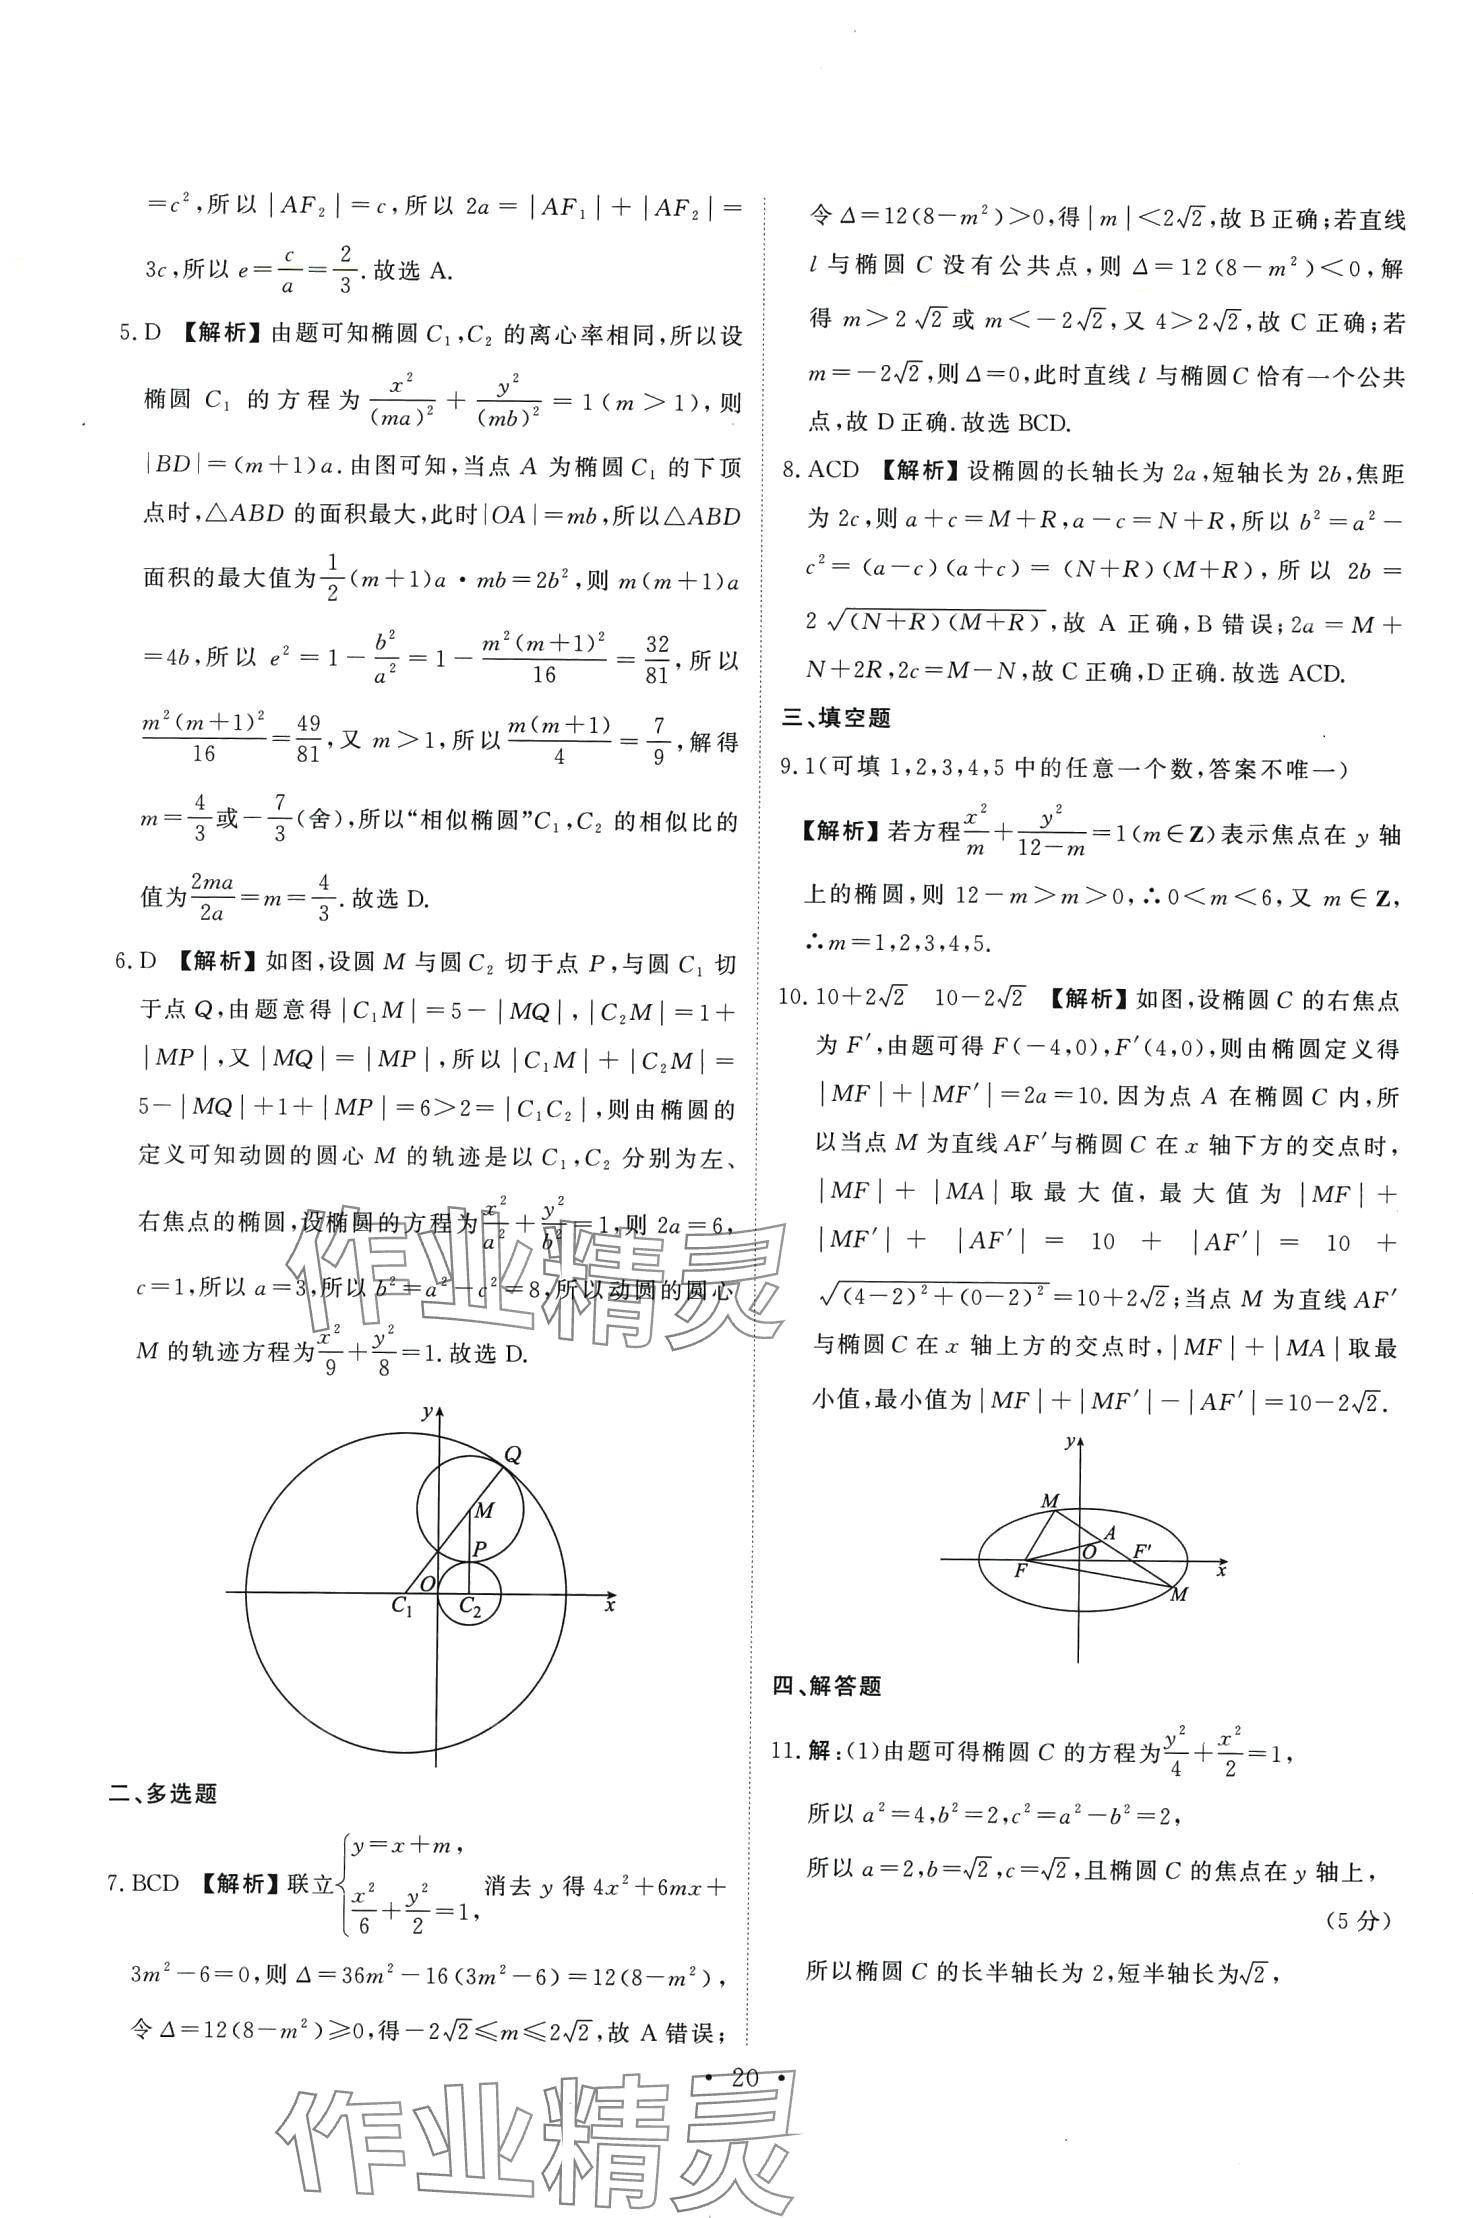 =c²,所以|AF₂|=c,所以 2a=|AF₁|+|AF₂|=
3c,所以 e=c/a=2/3.故选 A.
5. D 【解析】由题可知椭圆 C₁,C₂ 的离心率相同,所以设
椭圆 C₁ 的方程为 x²/(ma)²+y²/(mb)²=1(m>1),则
|BD|=(m+1)a.由图可知,当点 A 为椭圆 C₁ 的下顶
点时,△ABD 的面积最大,此时|OA|=mb,所以△ABD
面积的最大值为 1/2(m+1)a·mb=2b²,则 m(m+1)a
=4b,所以 e²=1-b²/a²=1-m²(m+1)²/16=32/81,所以
m²(m+1)²/16=49/81,又 m>1,所以 m(m+1)/4=7/9,解得
m=4/3或-7/3(舍),所以“相似椭圆”C₁,C₂ 的相似比的
值为 2ma/2a=m=4/3.故选 D.
6. D 【解析】如图,设圆 M 与圆 C₂ 切于点 P,与圆 C₁ 切
于点 Q,由题意得|C₁M|=5-|MQ|,|C₂M|=1+
|MP|,又|MQ|=|MP|,所以|C₁M|+|C₂M|=
5-|MQ|+1+|MP|=6>2=|C₁C₂|,则由椭圆的
定义可知动圆的圆心 M 的轨迹是以 C₁,C₂ 分别为左、
右焦点的椭圆,设椭圆的方程为 x²/a²+y²/b²=1,则 2a=6,
c=1,所以 a=3,所以 b²=a²-c²=8,所以动圆的圆心
M 的轨迹方程为 x²/9+y²/8=1.故选 D.
y
Q
M
P
O
C₁
C₂
x
二、多选题
7. BCD 【解析】联立{y=x+m, x²/6+y²/2=1, 消去 y 得 4x²+6mx+
3m²-6=0,则 Δ=36m²-16(3m²-6)=12(8-m²),
令 Δ=12(8-m²)≥0,得-2√2≤m≤2√2,故 A 错误;
令 Δ=12(8-m²)>0,得|m|<2√2,故 B 正确;若直线
l 与椭圆 C 没有公共点,则 Δ=12(8-m²)<0,解
得 m>2√2或 m<-2√2,又 4>2√2,故 C 正确;若
m=-2√2,则 Δ=0,此时直线 l 与椭圆 C 恰有一个公共
点,故 D 正确.故选 BCD.
8. ACD 【解析】设椭圆的长轴长为 2a,短轴长为 2b,焦距
为 2c,则 a+c=M+R,a-c=N+R,所以 b²=a²-
c²=(a-c)(a+c)=(N+R)(M+R),所以 2b=
2√(N+R)(M+R),故 A 正确,B 错误;2a=M+
N+2R,2c=M-N,故 C 正确,D 正确.故选 ACD.
三、填空题
9. 1(可填 1,2,3,4,5 中的任意一个数,答案不唯一)
【解析】若方程 x²/m+y²/(12-m)=1(m∈Z)表示焦点在 y 轴
上的椭圆,则 12-m>m>0,∴0<m<6,又 m∈Z,
∴m=1,2,3,4,5.
10. 10+2√2 10-2√2 【解析】如图,设椭圆 C 的右焦点
为 F′,由题可得 F(-4,0),F′(4,0),则由椭圆定义得
|MF|+|MF′|=2a=10.因为点 A 在椭圆 C 内,所
以当点 M 为直线 AF′与椭圆 C 在 x 轴下方的交点时,
|MF|+|MA|取最大值,最大值为|MF|+
|MF′|+|AF′|=10+|AF′|=10+
√(4-2)²+(0-2)²=10+2√2;当点 M 为直线 AF′
与椭圆 C 在 x 轴上方的交点时,|MF|+|MA|取最
小值,最小值为|MF|+|MF′|-|AF′|=10-2√2.
y
M
A
F
O
F′
x
M
四、解答题
11. 解:(1)由题可得椭圆 C 的方程为 y²/4+x²/2=1,
所以 a²=4,b²=2,c²=a²-b²=2,
所以 a=2,b=√2,c=√2,且椭圆 C 的焦点在 y 轴上,
(5 分)
所以椭圆 C 的长半轴长为 2,短半轴长为√2,
• 20 •
作业精灵
作业精灵